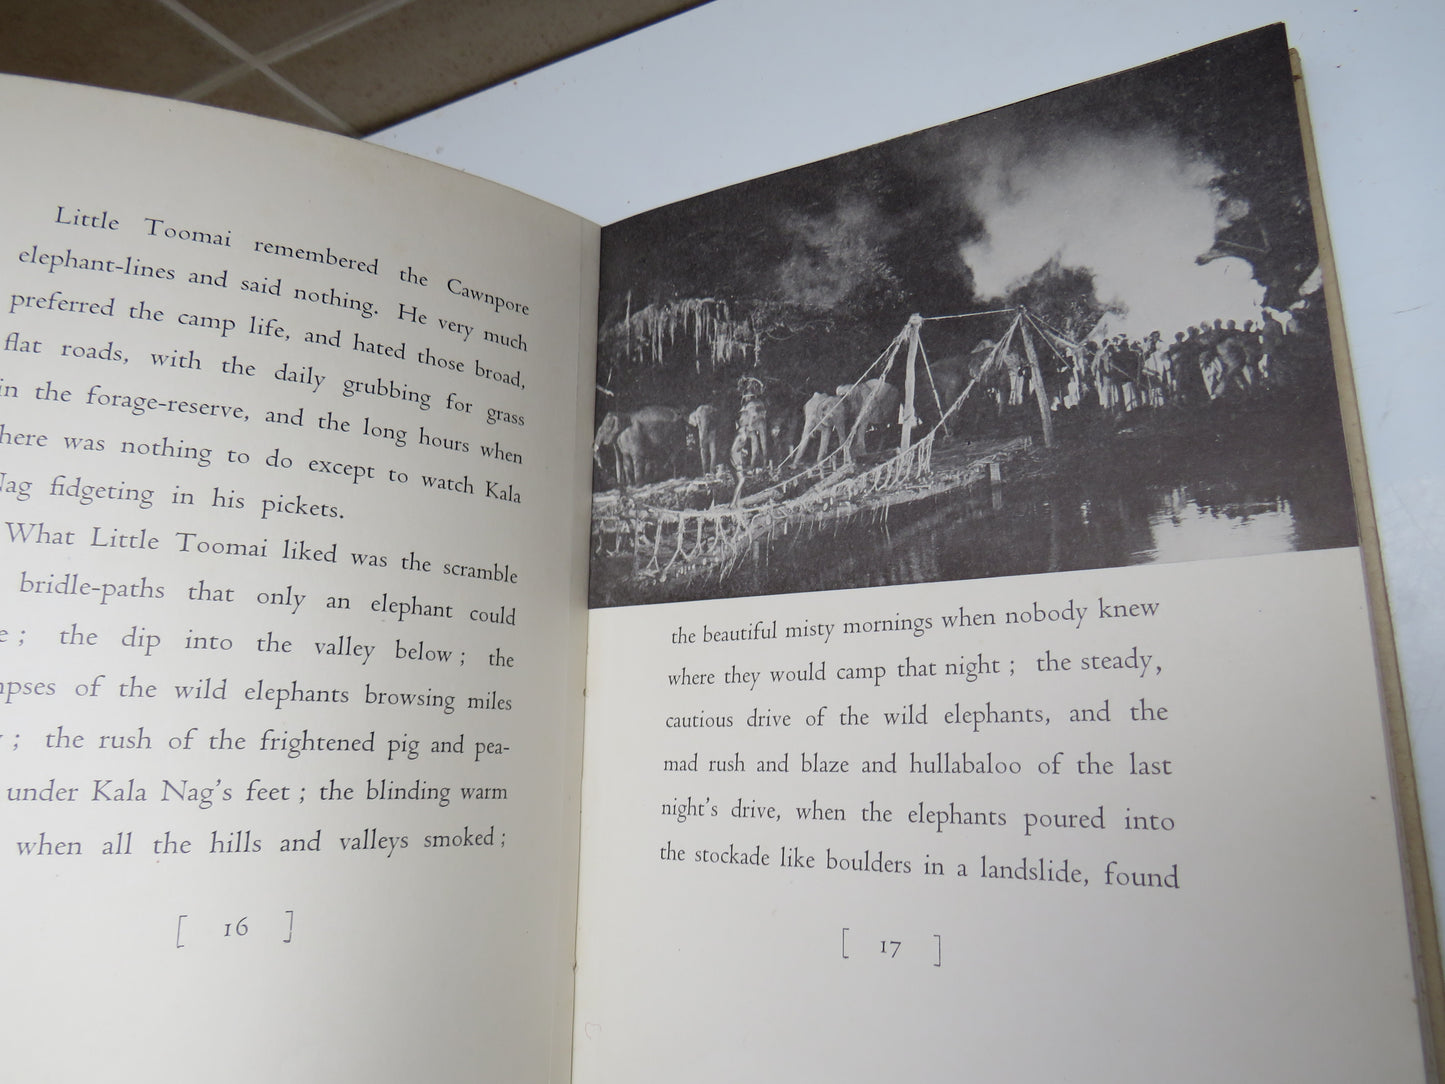 Little Toomai remembered the Cawnpore
elephant-lines and said nothing. He very much
preferred the camp life, and hated those broad,
flat roads, with the daily grubbing for grass
in the forage-reserve, and the long hours when
here was nothing to do except to watch Kala
Nag fidgeting in his pickets.
What Little Toomai liked was the scramble
bridle-paths that only an elephant could
e ; the dip into the valley below ; the
pses of the wild elephants browsing miles
; the rush of the frightened pig and pea-
under Kala Nag's feet ; the blinding warm
when all the hills and valleys smoked ;
[ 16 ]
the beautiful misty mornings when nobody knew
where they would camp that night ; the steady,
cautious drive of the wild elephants, and the
mad rush and blaze and hullabaloo of the last
night's drive, when the elephants poured into
the stockade like boulders in a landslide, found
[ 17 ]